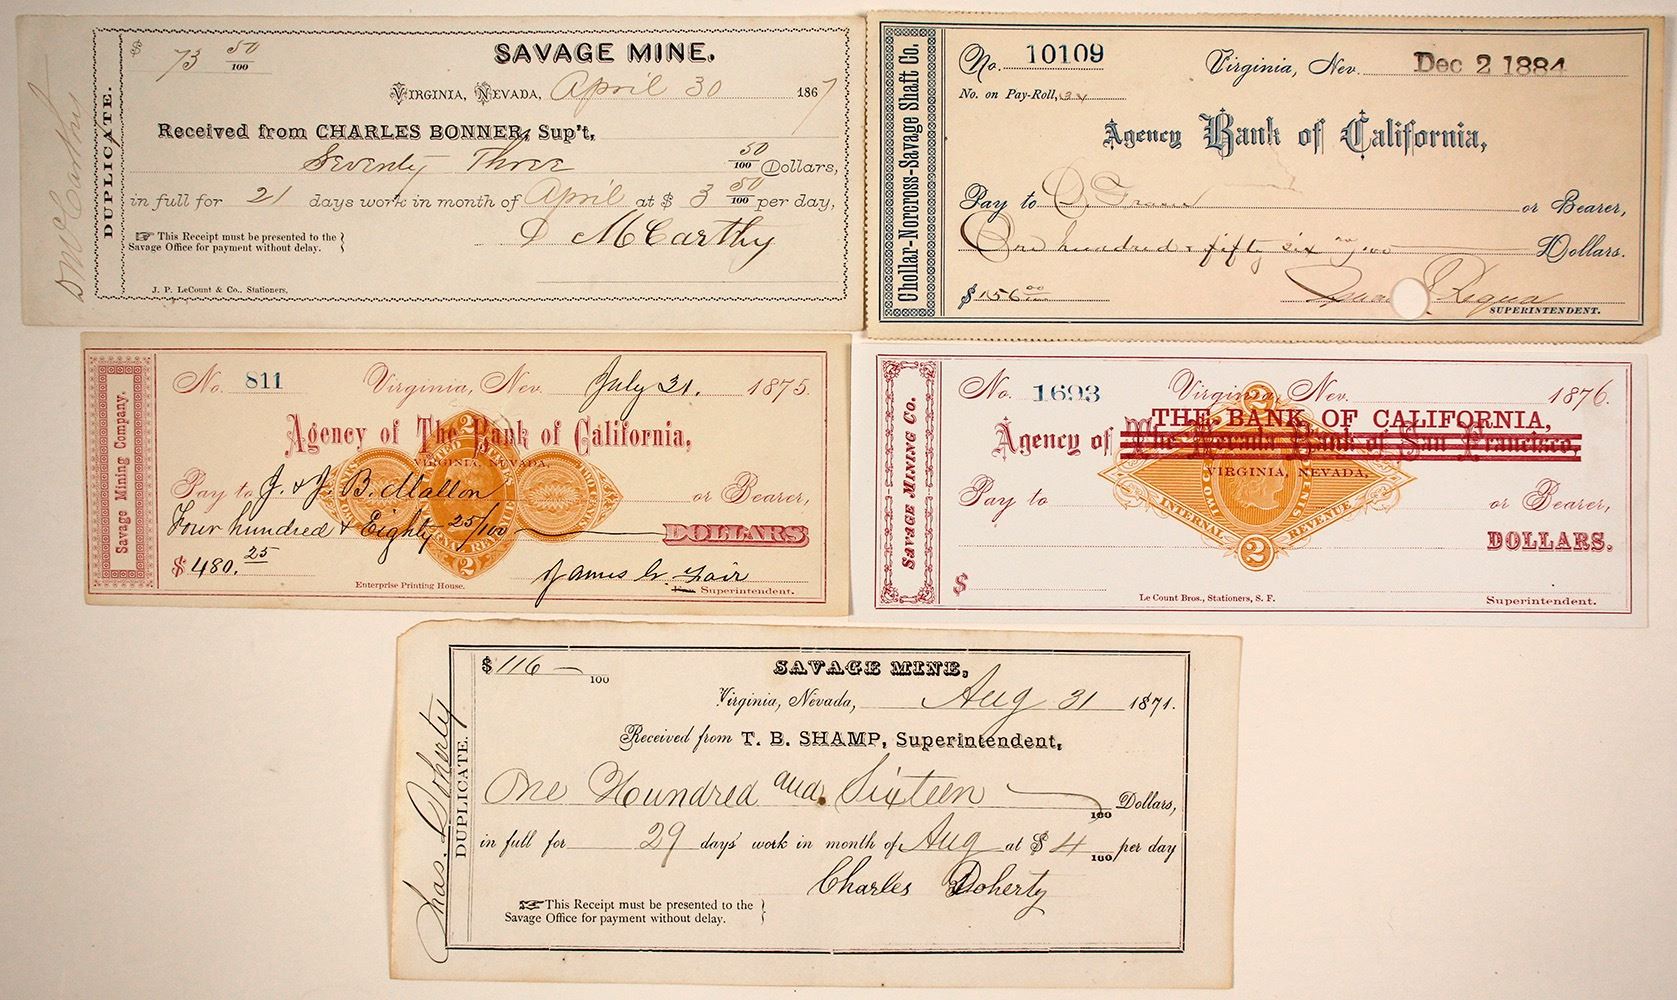 $ 73 50/100
SAVAGE MINE.
VIRGINIA, NEVADA, April 30 1867
Received from CHARLES BONNER, Sup't,
Seventy Three 50/100 Dollars,
in full for 21 days work in month of April at $ 3 50/100 per day,
D McCarthy
☞ This Receipt must be presented to the
Savage Office for payment without delay.
J. P. LeCount & Co., Stationers.
DUPLICATE.
D McCarthy
Chollar-Norcross-Savage Shaft Co.
No. 10109 Virginia, Nev. Dec 2 1884
No. on Pay-Roll, 34
Agency Bank of California,
Pay to or Bearer,
One hundred & fifty six no/100 Dollars.
$ 156 00/100
Requa
SUPERINTENDENT.
Savage Mining Company.
No. 811 Virginia, Nev. July 31. 1875.
Agency of The Bank of California,
VIRGINIA, NEVADA,
Pay to J. & J. B. Mallon or Bearer,
Four hundred & Eighty 25/100 DOLLARS
$ 480. 25
James G. Fair
Enterprise Printing House.
Superintendent.
SAVAGE MINING CO.
No. 1693 Virginia, Nev. 1876.
THE BANK OF CALIFORNIA,
Agency of The Nevada Bank of San Francisco,
VIRGINIA, NEVADA,
Pay to or Bearer,
INTERNAL REVENUE
TWO CENTS
2
DOLLARS.
$
Le Count Bros., Stationers, S. F.
Superintendent.
$ 116 — 100
SAVAGE MINE,
Virginia, Nevada, Aug 31 1871.
Received from T. B. SHAMP, Superintendent,
One Hundred and Sixteen — 100 Dollars,
in full for 29 days' work in month of Aug at $ 4 100 per day
Charles Doherty
☞ This Receipt must be presented to the
Savage Office for payment without delay.
DUPLICATE.
Chas. Doherty